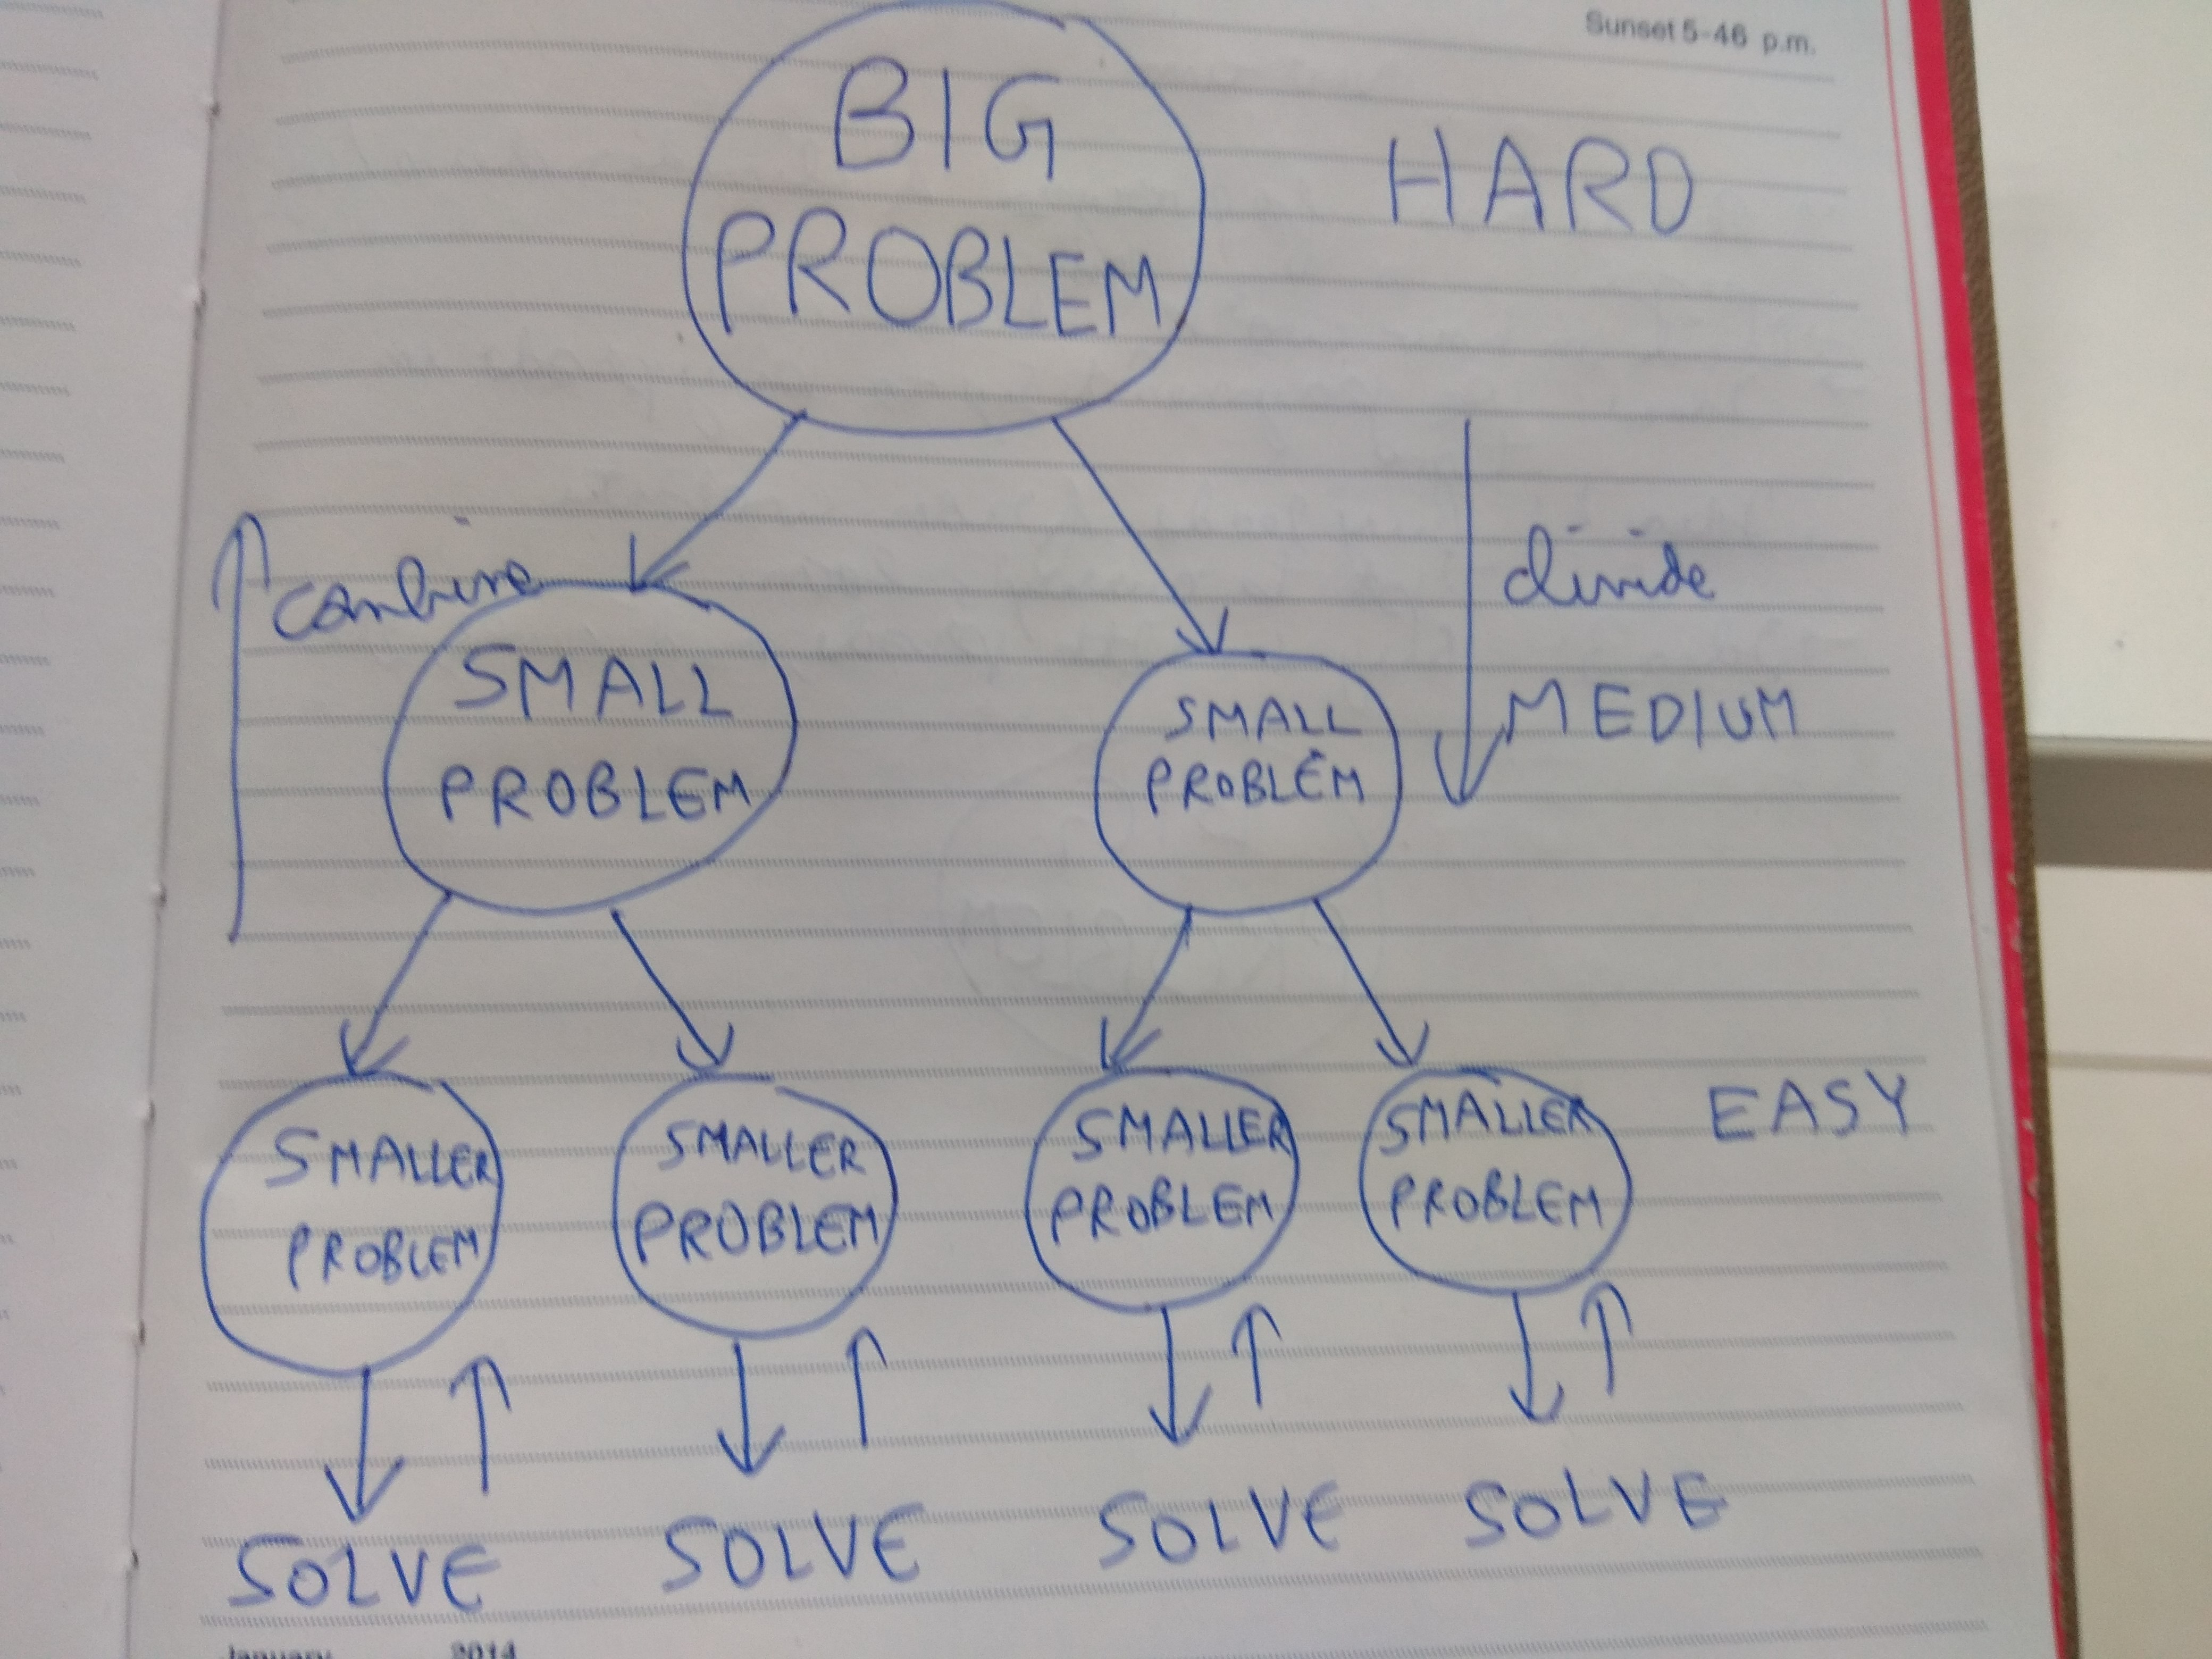 Sunset 5-46 p.m.
BIG
PROBLEM
HARD
combine
divide
SMALL
PROBLEM
SMALL
PROBLEM
MEDIUM
SMALLER
PROBLEM
SMALLER
PROBLEM
SMALLER
PROBLEM
SMALLER
PROBLEM
EASY
SOLVE
SOLVE
SOLVE
SOLVE
January 2014